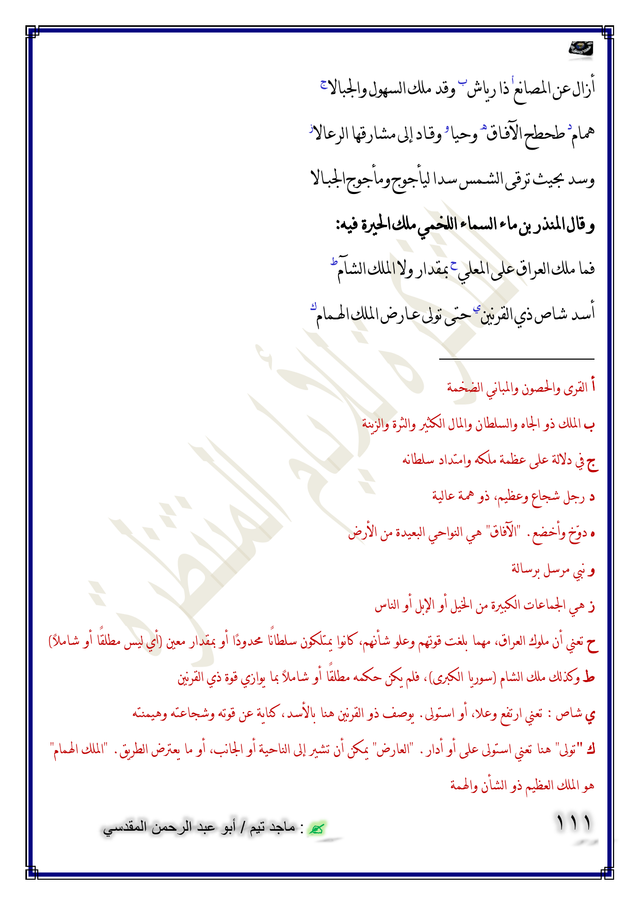 أزال عن المصانع أ ذا رياش ب وقد ملك السهول والجبالا ج
همام د طحطح الآفاق ه وحيا و وقاد إلى مشارقها الرعالا ز
وسد بحيث ترقى الشمس سدا ليأجوج ومأجوج الجبالا
وقال المنذر بن ماء السماء اللخمي ملك الحيرة فيه:
فما ملك العراق على المعلي ح بمقدار ولا الملك الشآم ط
أسد شاص ذي القرنين ي حتى تولى عارض الملك الهمام ك
أ القرى والحصون والمباني الضخمة
ب الملك ذو الجاه والسلطان والمال الكثير والثرة والزينة
ج في دلالة على عظمة ملكه وامتداد سلطانه
د رجل شجاع وعظيم، ذو همة عالية
ه دوّخ وأخضع. "الآفاق" هي النواحي البعيدة من الأرض
و نبي مرسل برسالة
ز هي الجماعات الكبيرة من الخيل أو الإبل أو الناس
ح تعني أن ملوك العراق، مهما بلغت قوتهم وعلو شأنهم، كانوا يمتلكون سلطانًا محدودًا أو بمقدار معين (أي ليس مطلقًا أو شاملاً)
ط وكذلك ملك الشام (سوريا الكبرى)، فلم يكن حكمه مطلقًا أو شاملاً بما يوازي قوة ذي القرنين
ي شاص : تعني ارتفع وعلا، أو استولى. يوصف ذو القرنين هنا بالأسد، كناية عن قوته وشجاعته وهيمنته
ك "تولى" هنا تعني استولى على أو أدار. "العارض" يمكن أن تشير إلى الناحية أو الجانب، أو ما يعترض الطريق. "الملك الهمام"
هو الملك العظيم ذو الشأن والهمة
١١١
: ماجد تيم / أبو عبد الرحمن المقدسي